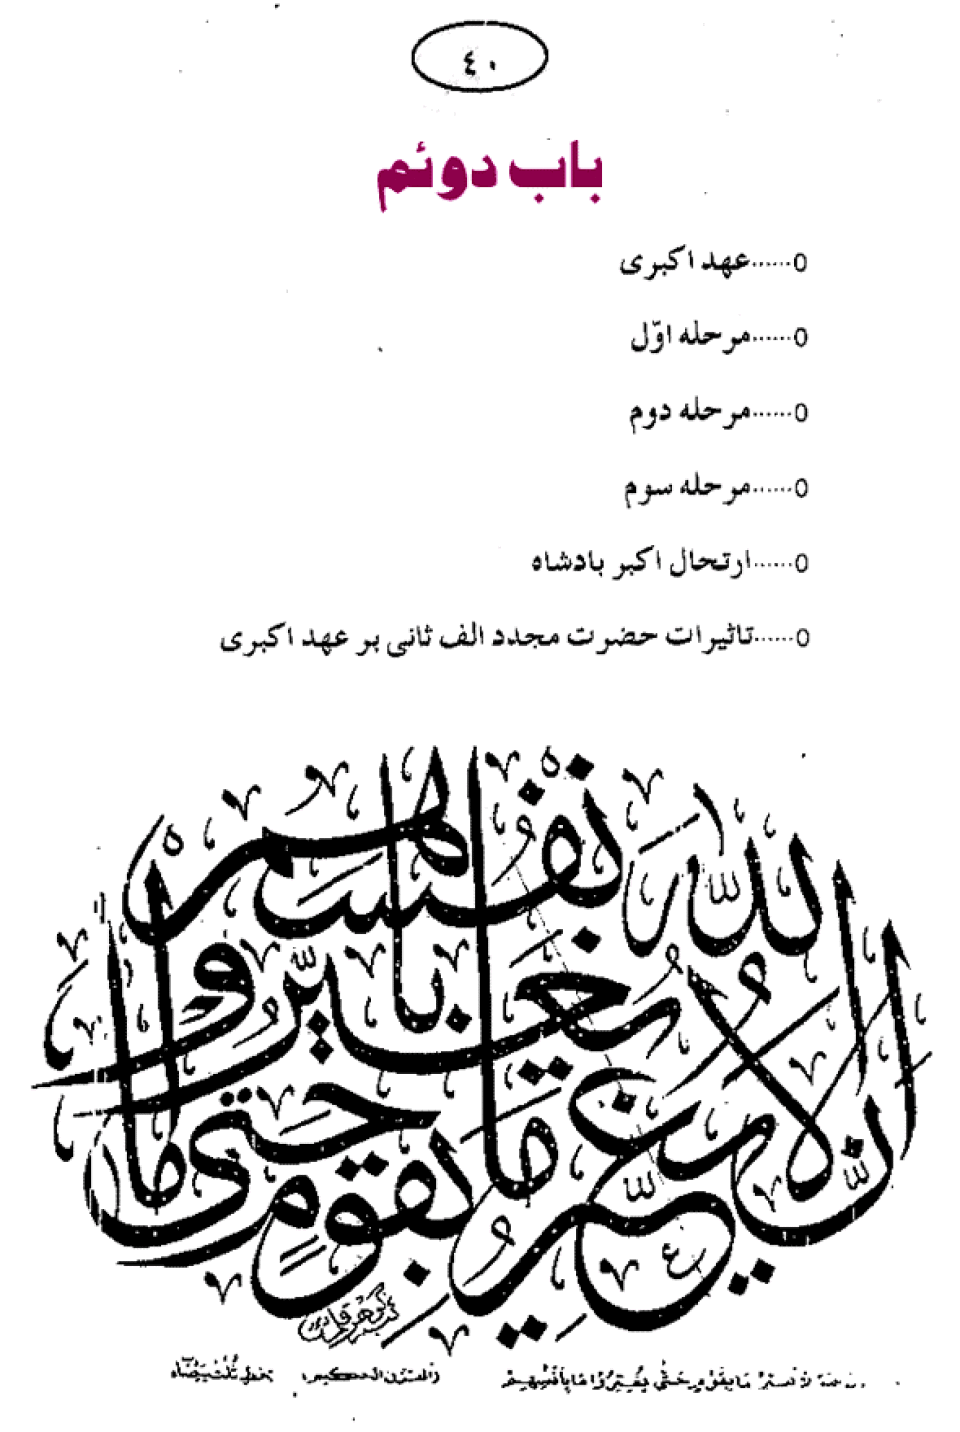 ٤٠
باب دوئم
○......عهد اکبری
○......مرحله اوّل
○......مرحله دوم
○......مرحله سوم
○......ارتحال اکبر بادشاه
○......تاثیرات حضرت مجدد الف ثانی بر عهد اکبری
إن الله لا يغير ما بقوم حتى يغيروا ما بأنفسهم
مَا بِقَوْمٍ حَتَّى يُغَيِّرُوا مَا بِأَنْفُسِهِمْ